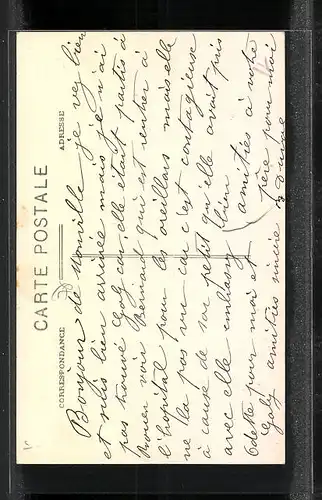 CARTE POSTALE
CORRESPONDANCE
ADRESSE
Bonjour de Monville je vej bien
et suis bien arrivée mais je n'ai
pas trouvé Gaby car elle etait partis à
Rouen voir Bernard qui est rentrer à
l'hôpital pour les oreillers maiselle
ne la pas vue car c'est contagieuse
à cause de son petit qu'elle avait pris
avec elle embrassy bien
Odette pour moi et
Gaby amitiés sincere
amitiés à votre
père pour moi